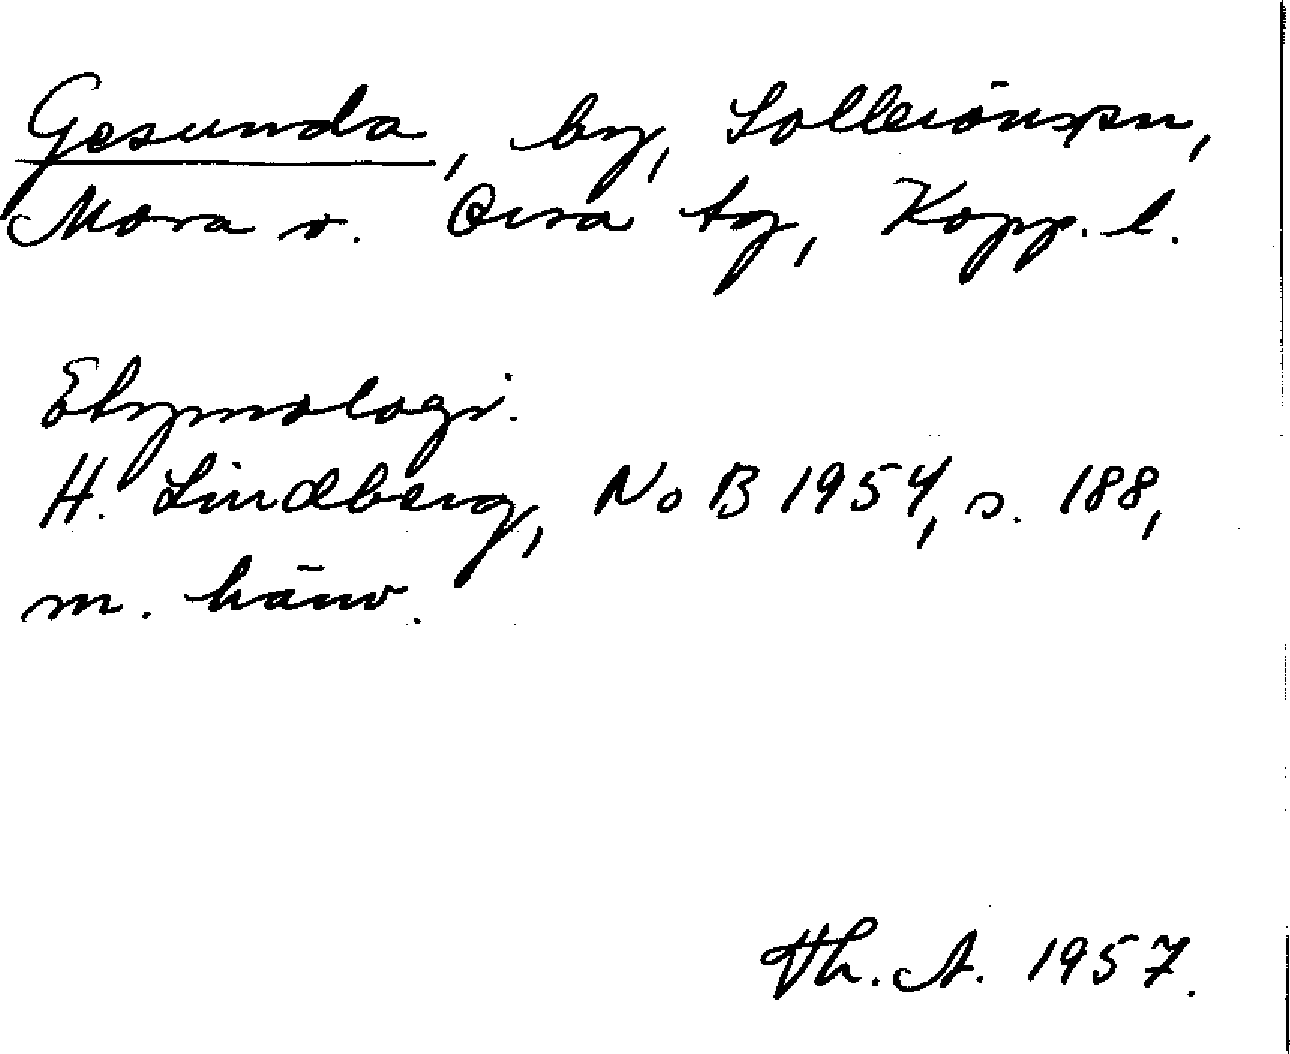 Gesunda, by, Sollerön spn,
Mora o. Orsa tg, Kopp. l.
Etymologi.
H. Lindberg, NoB 1954, s. 188,
m. hänv.
Th. A. 1957.